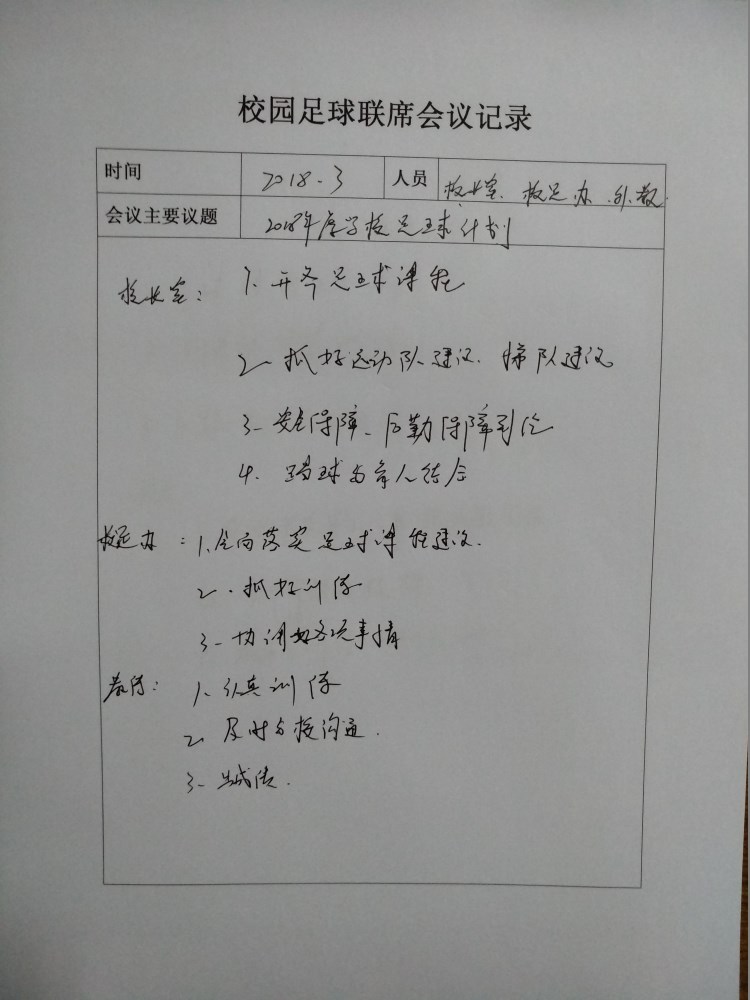 校园足球联席会议记录
时间 2018.3 人员 校长室、校足办、外教
会议主要议题 2018年度学校足球计划
校长室: 1. 开齐足球课程
2. 抓好运动队建设、梯队建设
3. 安全保障、后勤保障到位
4. 踢球与育人结合
校足办: 1. 全面落实足球课程建设.
2. 抓好训练
3. 协调好各项事情
教练: 1. 认真训练
2. 及时与校沟通.
3.